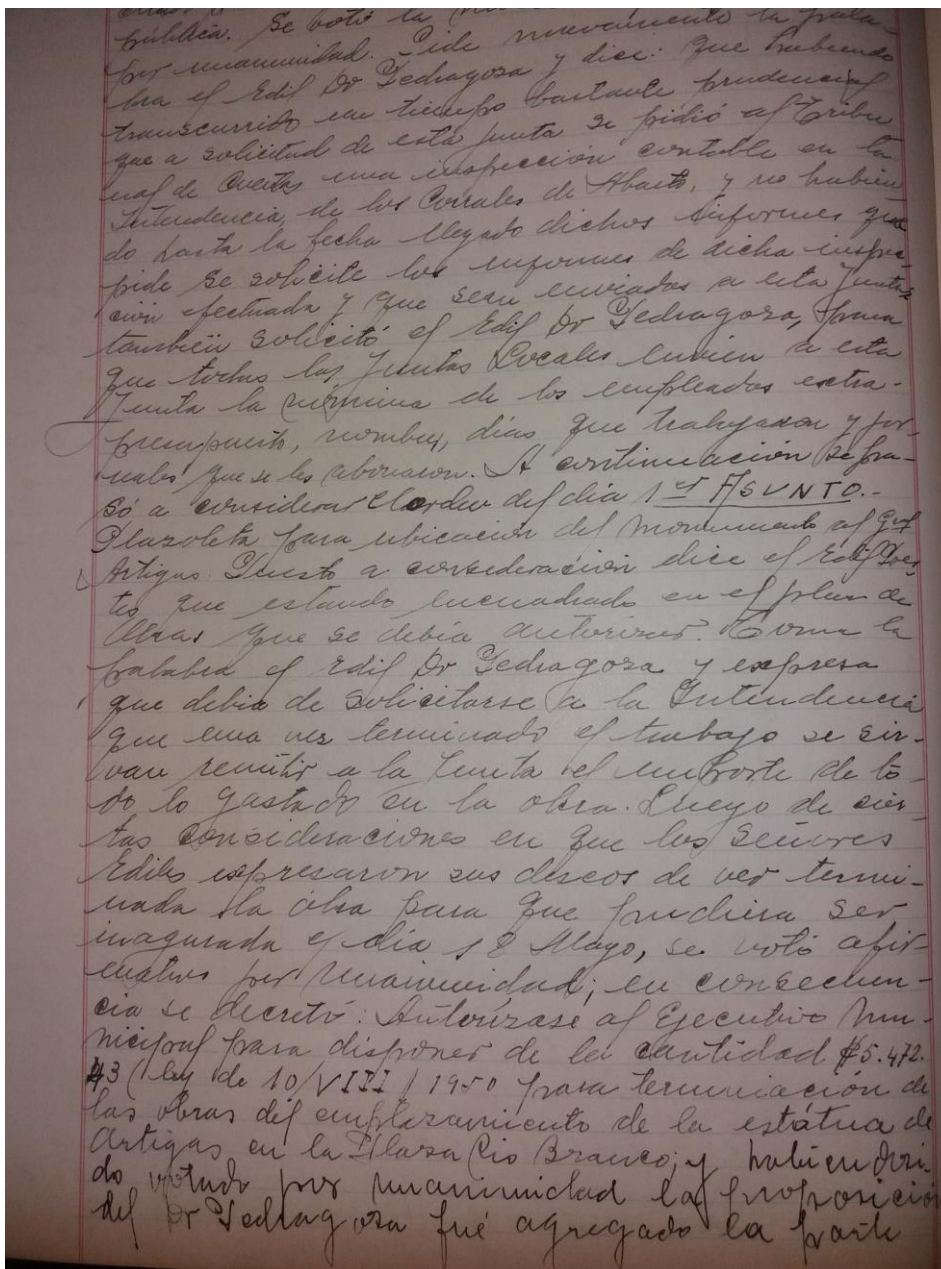 pública. Se votó la
por unanimidad. Pide nuevamente la pala-
bra el Edil Dr Pedragoza y dice: que habiendo
transcurrido un tiempo bastante prudencial
que a solicitud de esta Junta se pidió al Tribu
nal de Cuentas una inspección contable en la
Intendencia, de los Corrales de Abasto, y no habien
do hasta la fecha llegado dichos informes que
pide se solicite los informes de dicha inspec-
ción efectuada y que sean enviados a esta Junta
también solicitó el Edil Dr Pedragoza, para
que todas las Juntas Locales envien a esta
Junta la nómina de los empleados extra-
presupuesto, nombres, días que trabajaron y jor-
nales que se les abonaron. A continuación se pa-
só a considerar el orden del día 1er ASUNTO.-
Plazoleta para ubicación del monumento al Gral
Artigas. Puesto a consideración dice el Edil
que estando encuadrado en el plan de
Obras que se debía autorizar. Toma la
palabra el Edil Dr Pedragoza y expresa
que debia de solicitarse a la Intendencia
que una vez terminado el trabajo se sir-
van remitir a la Junta el importe de to-
do lo gastado en la obra. Luego de cier
tas consideraciones en que los Señores
Ediles expresaron sus deseos de ver termi-
nada la obra para que pudiera ser
inagurada el día 18 Mayo, se votó afir-
mativo por unanimidad; en consecuen-
cia se decretó: Autorízase al Ejecutivo Mu-
nicipal para disponer de la cantidad $5.472.
43 (ley de 10/VIII/1950 para terminación de
las obras del emplazamiento de la estátua de
Artigas en la Plaza Rio Branco; y habiendo
do votado por unanimidad la proposición
del Dr Pedragoza fué agregado la parte